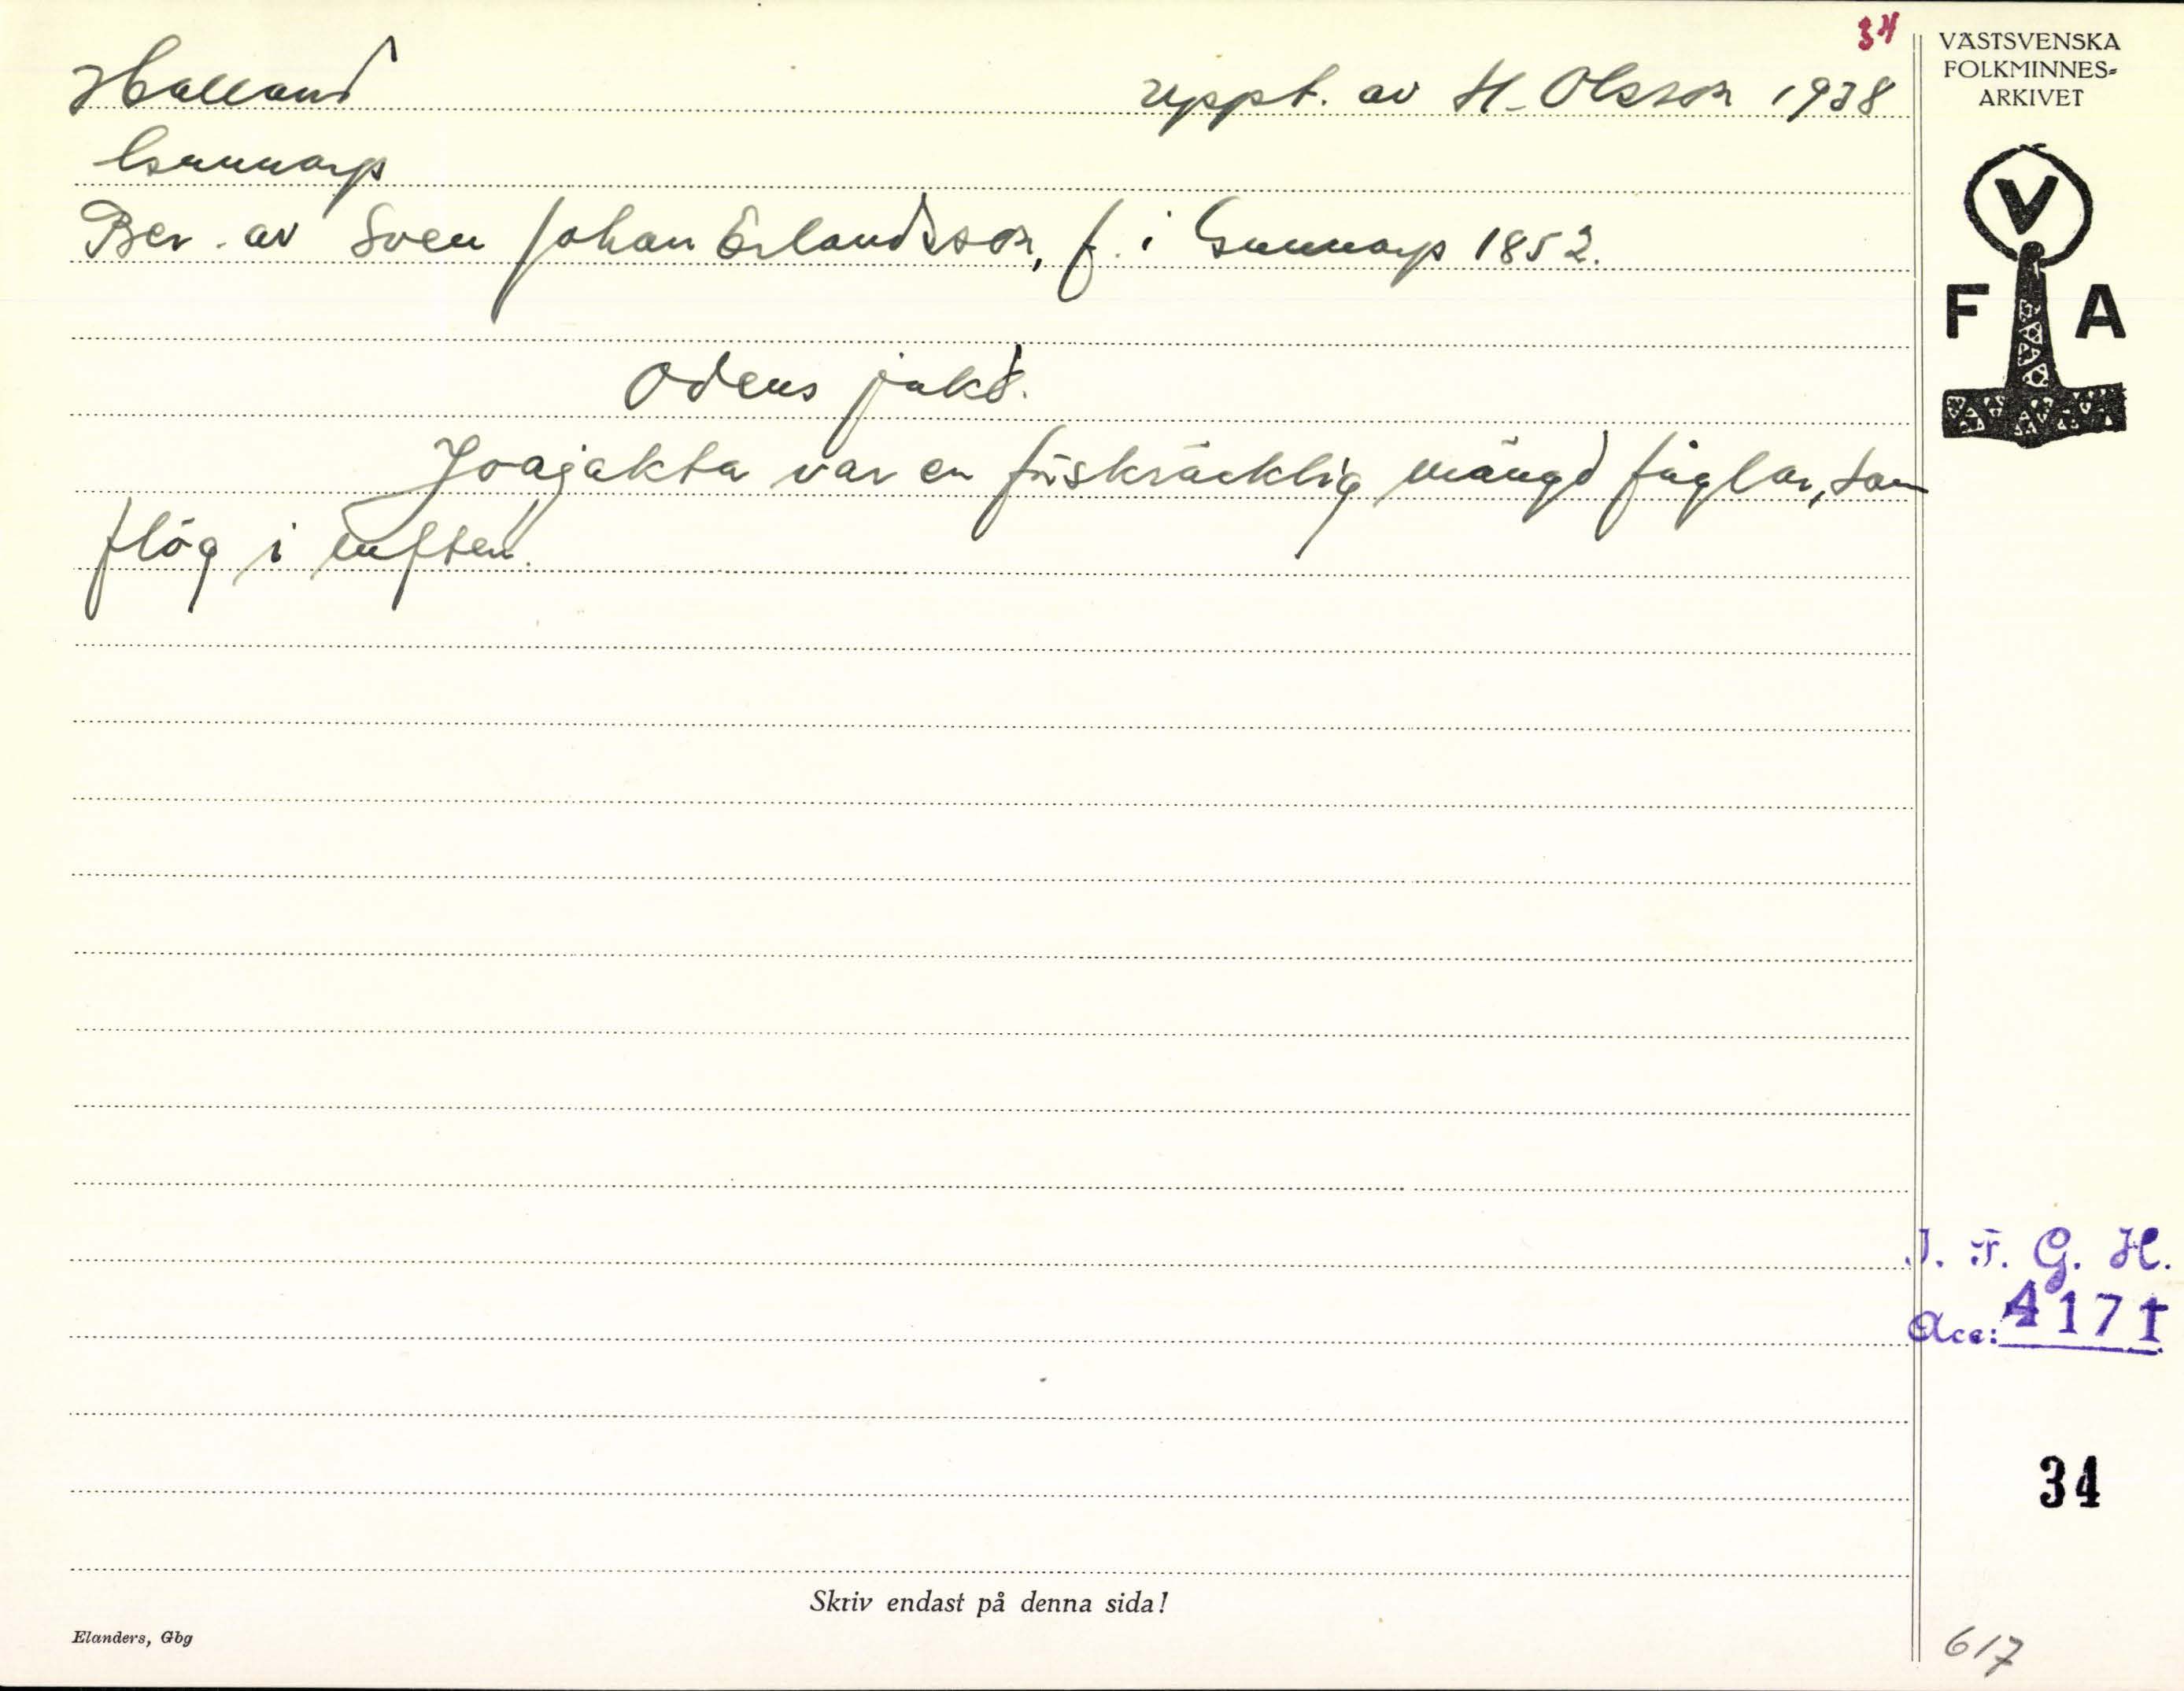 34
Halland uppt. av H. Olsson 1938
Gunnarp
Ber. av Sven Johan Erlandsson, f. i Gunnarp 1852.
Odens jakt.
Joajakta var en förskräcklig mängd fåglar, som
flög i luften.
VÄSTSVENSKA
FOLKMINNES-
ARKIVET
V
F A
I. F. G. H.
Acc: 4171
34
Skriv endast på denna sida!
Elanders, Gbg
617